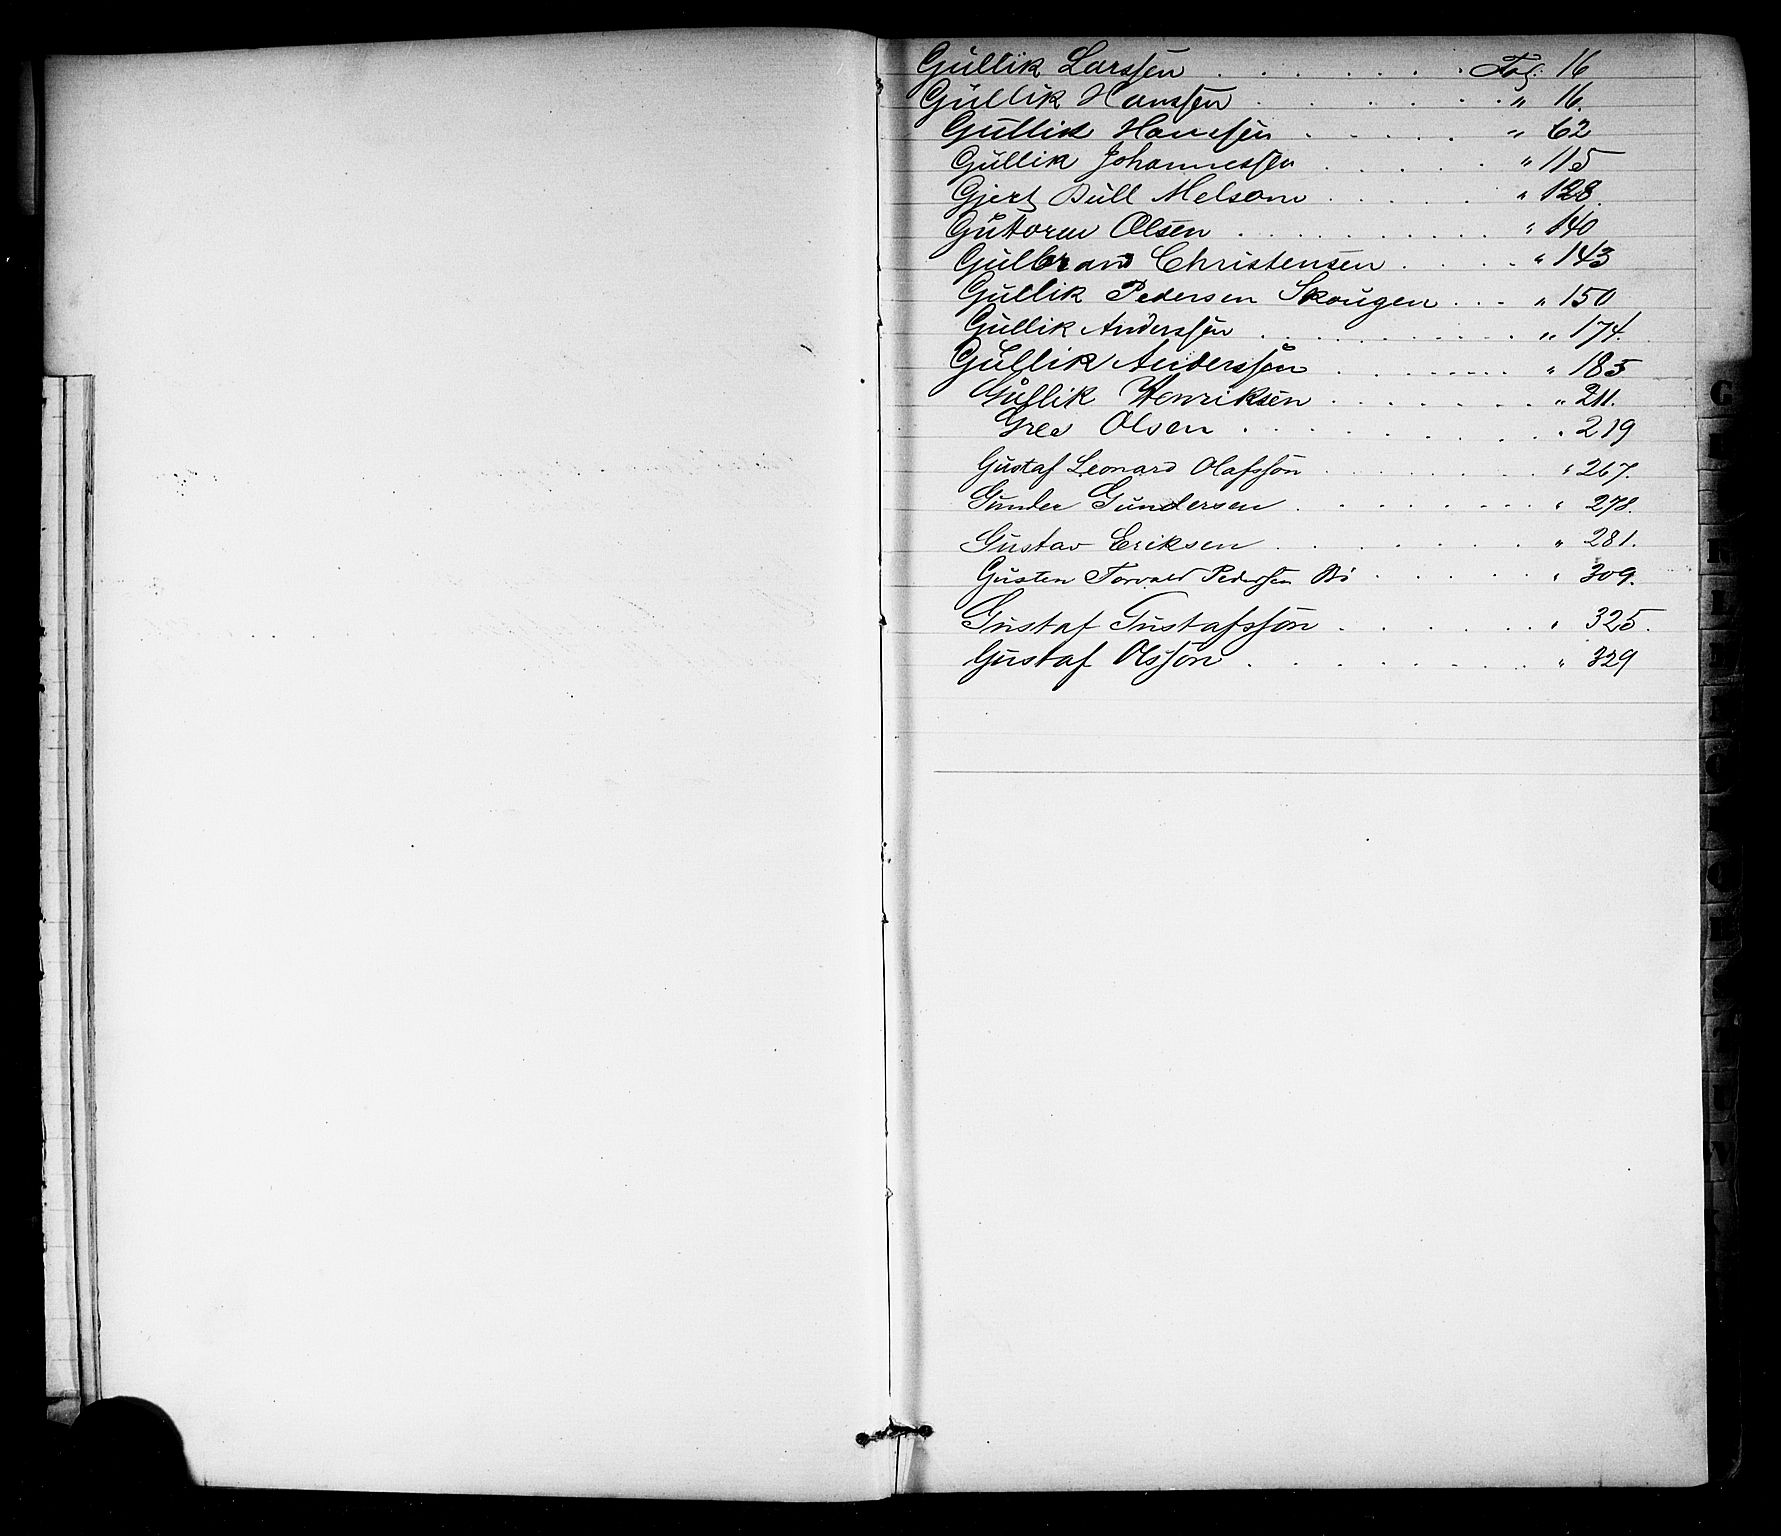 Gullik Larssen . . . . . . . Fol: 16
Gullik Hanssen . . . . . . " 16.
Gullik Hanssen . . . . . " 62
Gullik Johannessen . . . . . " 115
Gjert Bull Melsom . . . . . " 128.
Guttorm Olsen . . . . . . . . . " 140
Gulbrand Christensen . . . . " 143
Gullik Pedersen Skougen . . . " 150
Gullik Anderssen . . . . . . . . " 174.
Gullik Anderssen . . . . . . . " 185
Gullik Henriksen . . . . . . " 211.
Olsen . . . . . . . . " 219
Gustaf Leonard Olafsson . . . . . . " 267.
Gunder Gundersen . . . . . . . " 278.
Gustav Eriksen . . . . . . . " 281.
Gusten Torvald Pedersen Bö . . . . . " 309.
Gustaf Gustafsson . . . . . . " 325.
Gustaf Olsson . . . . . . . . " 329
G